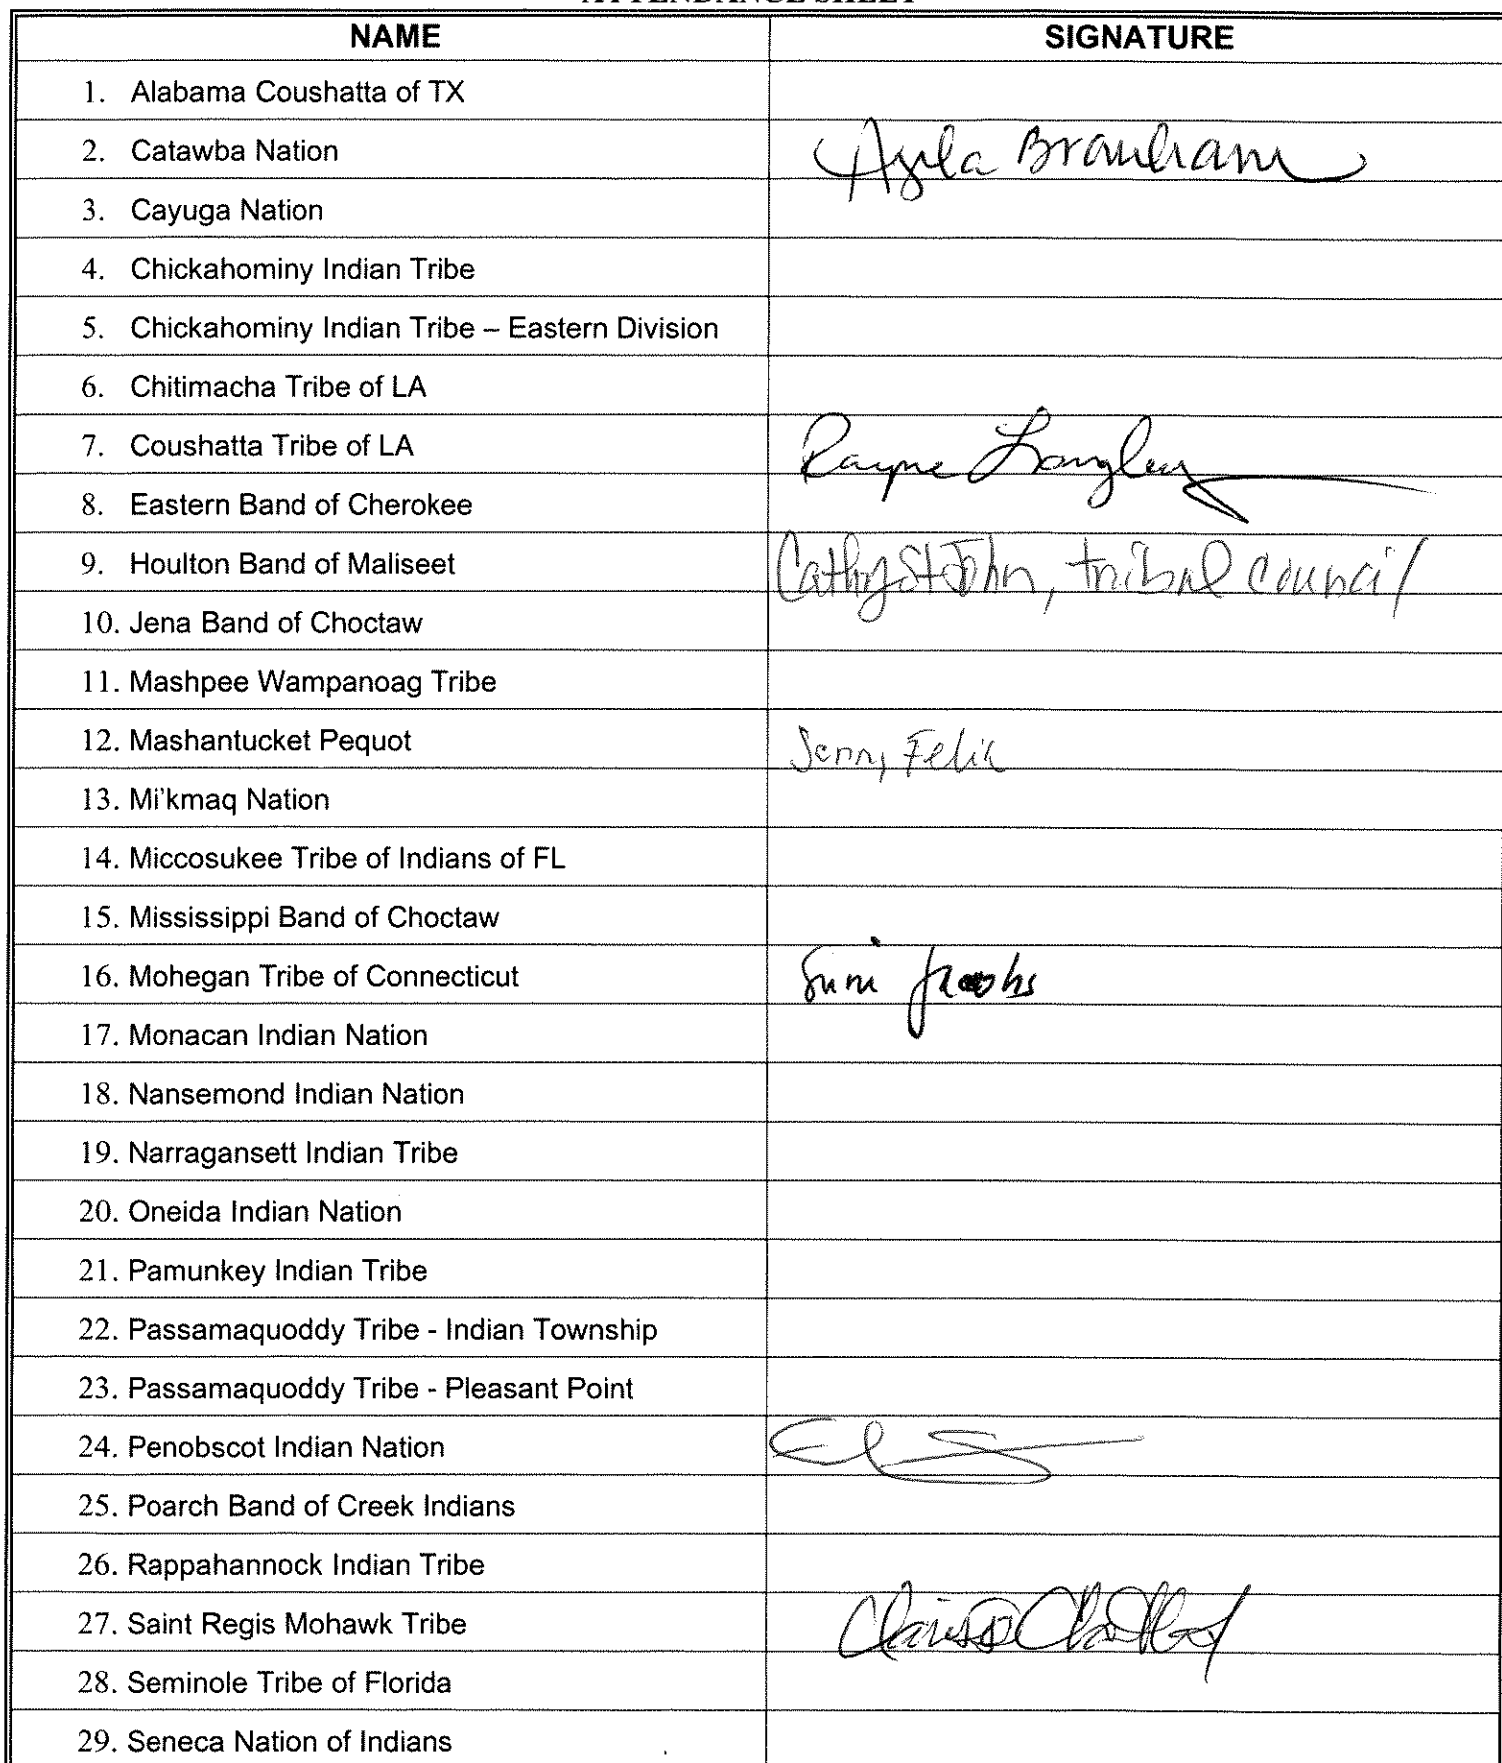 ATTENDANCE SHEET
NAME SIGNATURE
1. Alabama Coushatta of TX
2. Catawba Nation Ayla Branham
3. Cayuga Nation
4. Chickahominy Indian Tribe
5. Chickahominy Indian Tribe – Eastern Division
6. Chitimacha Tribe of LA
7. Coushatta Tribe of LA Rayne Langley
8. Eastern Band of Cherokee
9. Houlton Band of Maliseet Cathy St John, tribal council
10. Jena Band of Choctaw
11. Mashpee Wampanoag Tribe
12. Mashantucket Pequot Felix
13. Mi'kmaq Nation
14. Miccosukee Tribe of Indians of FL
15. Mississippi Band of Choctaw
16. Mohegan Tribe of Connecticut Jacobs
17. Monacan Indian Nation
18. Nansemond Indian Nation
19. Narragansett Indian Tribe
20. Oneida Indian Nation
21. Pamunkey Indian Tribe
22. Passamaquoddy Tribe - Indian Township
23. Passamaquoddy Tribe - Pleasant Point
24. Penobscot Indian Nation
25. Poarch Band of Creek Indians
26. Rappahannock Indian Tribe
27. Saint Regis Mohawk Tribe
28. Seminole Tribe of Florida
29. Seneca Nation of Indians